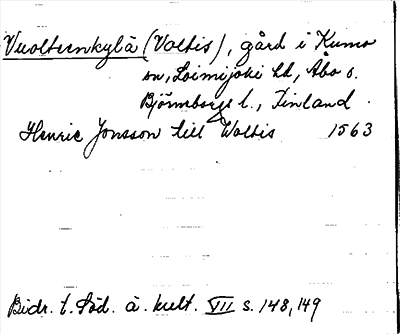 Vuolteenkylä (Voltis), gård i Kumo
sn, Loimijoki hd, Åbo o.
Björneborgs l., Finland.
Henric Jonsson till Woltis 1563
Bidr. t. Söd. ä. kult. VII s. 148, 149